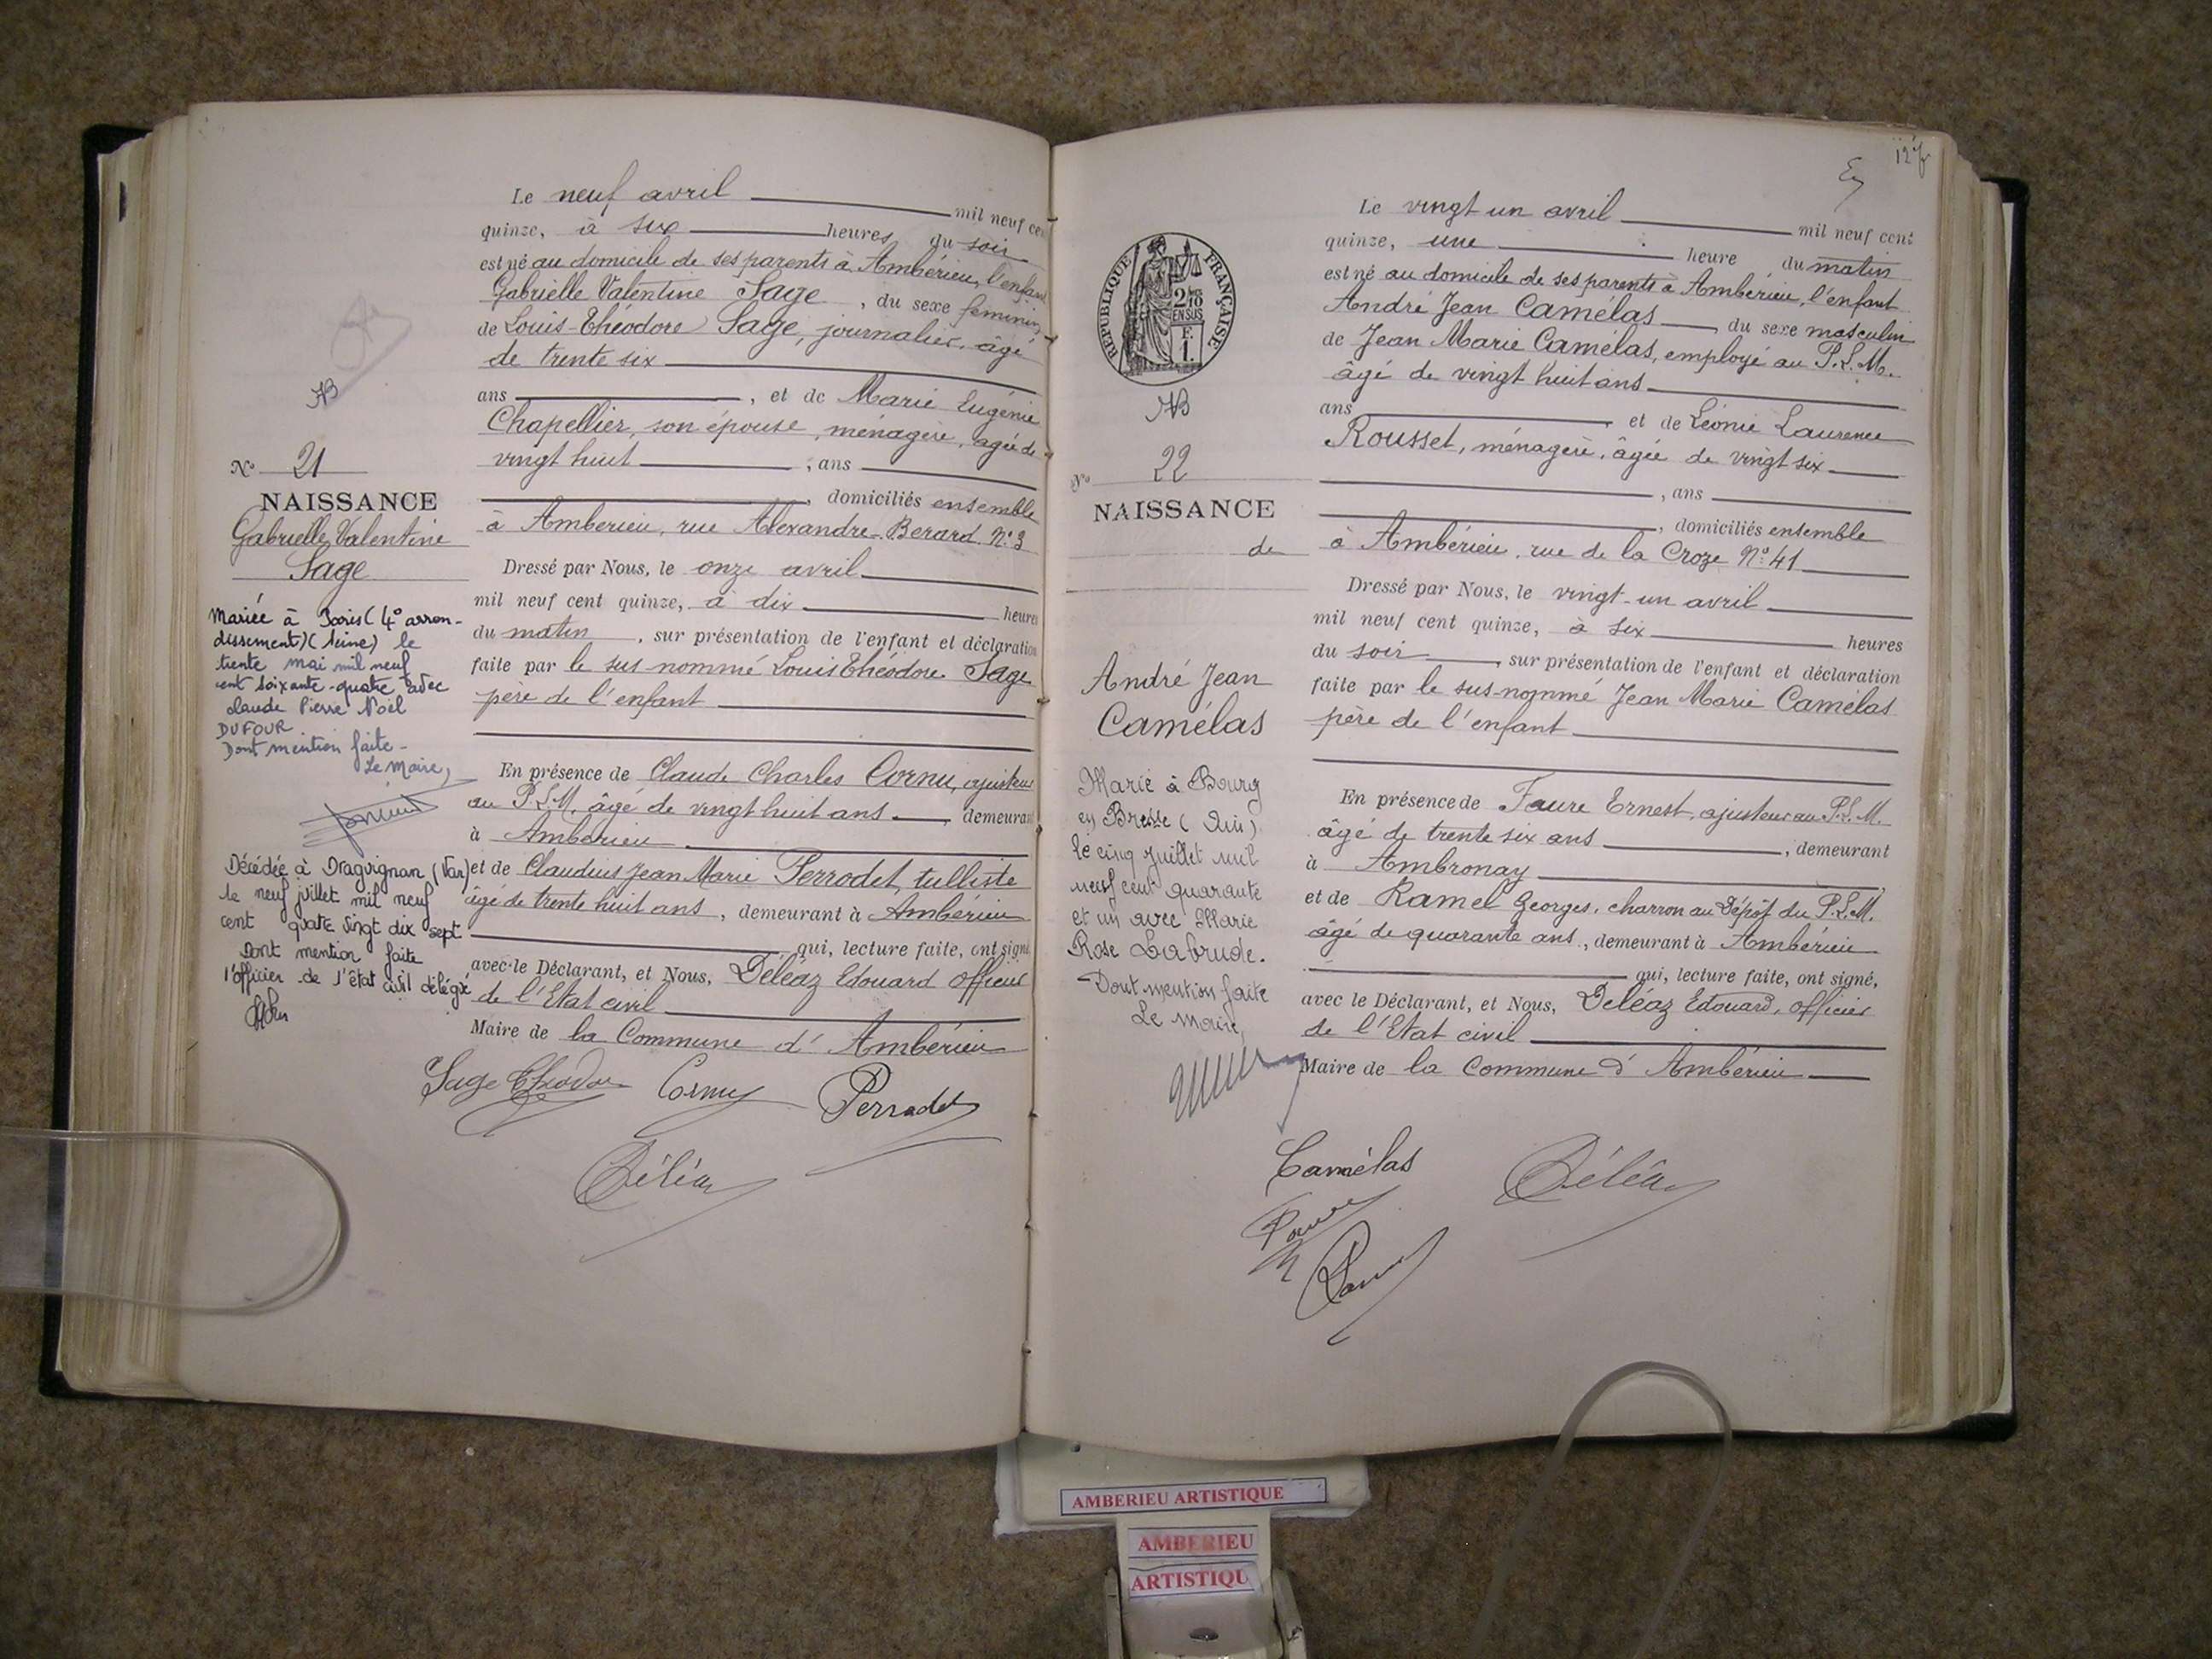 Le neuf avril mil neuf cen
quinze, à six heures du soir
est né au domicile de ses parents à Ambérieu, l'enfant
Gabrielle Valentine Sage, du sexe féminin
de Louis-Théodore Sage, journalier, âgé
de trente six
ans, et de Marie Eugénie
Chapellier, son épouse, ménagère, agée de
vingt huit, ans
, domiciliés ensemble
à Amberieu, rue Alexandre-Berard N° 3
Dressé par Nous, le onze avril
mil neuf cent quinze, à dix heures
du matin, sur présentation de l'enfant et déclaration
faite par le sus nommé Louis Théodore Sage
père de l'enfant
En présence de Claude Charles Cornu, ajusteur
au P.L.M. âgé de vingt huit ans, demeurant
à Ambérieu
et de Claudius Jean Marie Perrodet, tulliste
âgé de trente huit ans, demeurant à Ambérieu
qui, lecture faite, ont signé
avec le Déclarant, et Nous, Déléaz Edouard officier
de l'Etat civil
Maire de la Commune d'Ambérieu
Sage Théodore Cornu Perrodet
Déléaz
N° 21
NAISSANCE
Gabrielle Valentine
Sage
Mariée à Paris (4° arron-
dissement) (Seine) le
trente mai mil neuf
cent soixante-quatre avec
Claude Pierre Noël
DUFOUR
Dont mention faite-
Le Maire,
Décédée à Draguignan (Var)
le neuf juillet mil neuf
cent quatre vingt dix sept
Dont mention faite
l'officier de l'état civil délégué
127
Le vingt un avril mil neuf cent
quinze, une heure du matin
est né au domicile de ses parents à Ambérieu, l'enfant
André Jean Camélas, du sexe masculin
de Jean Marie Camélas, employé au P.L.M.
âgé de vingt huit ans
ans et de Léonie Laurence
Rousset, ménagère, âgée de vingt six
, ans
, domiciliés ensemble
à Ambérieu, rue de la Croze N° 41
Dressé par Nous, le vingt-un avril
mil neuf cent quinze, à six heures
du soir, sur présentation de l'enfant et déclaration
faite par le sus-nommé Jean Marie Camélas
père de l'enfant
En présence de Faure Ernest, ajusteur au P.L.M.
âgé de trente six ans, demeurant
à Ambronay
et de Ramel Georges, charron au Dépôt du P.L.M.
âgé de quarante ans, demeurant à Ambérieu
qui, lecture faite, ont signé,
avec le Déclarant, et Nous, Deléaz Edouard, officier
de l'Etat civil
Maire de la Commune d'Ambérieu
Camélas Déléaz
Faure
REPUBLIQUE FRANÇAISE
2/10
EN SUS
F.
1.
N° 22
NAISSANCE
de
André Jean
Camélas
Marié à Bourg
en Bresse (Ain)
le cinq juillet mil
neuf cent quarante
et un avec Marie
Rose Labrude.
Dont mention faite
Le Maire,
AMBERIEU ARTISTIQUE
AMBERIEU
ARTISTIQU